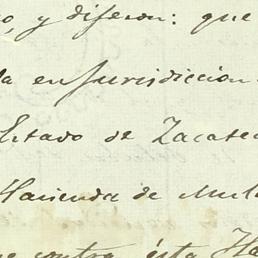 o, y dijeron: que
da en Jurisdiccion
Estado de Zacate
Hacienda de Mul
contra ésta Ha